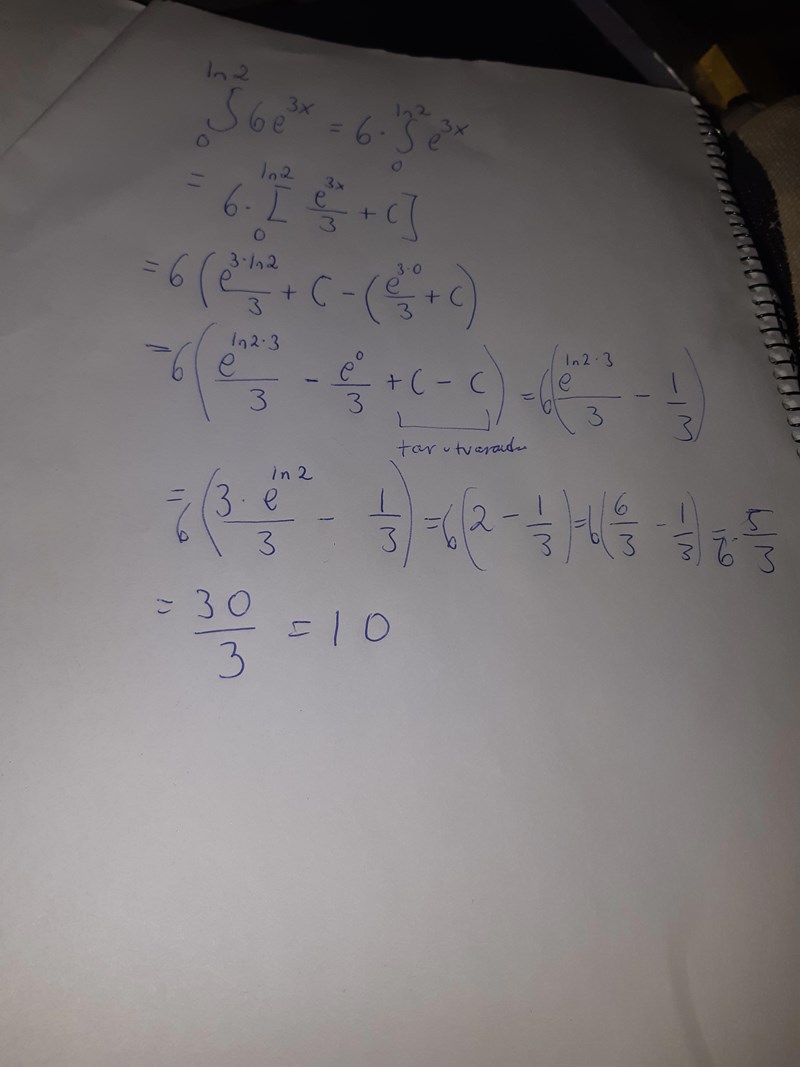 ∫₀^{ln2} 6e^{3x} = 6 · ∫₀^{ln2} e^{3x}
= 6 · [e^{3x}/3 + C]₀^{ln2}
= 6 (e^{3·ln2}/3 + C - (e^{3·0}/3 + C)
= 6 (e^{ln2·3}/3 - e^0/3 + C - C) = 6(e^{ln2·3}/3 - 1/3)
tar
= 6 (3·e^{ln2}/3 - 1/3) = 6(2 - 1/3) = 6(6/3 - 1/3) = 6·5/3
= 30/3 = 10